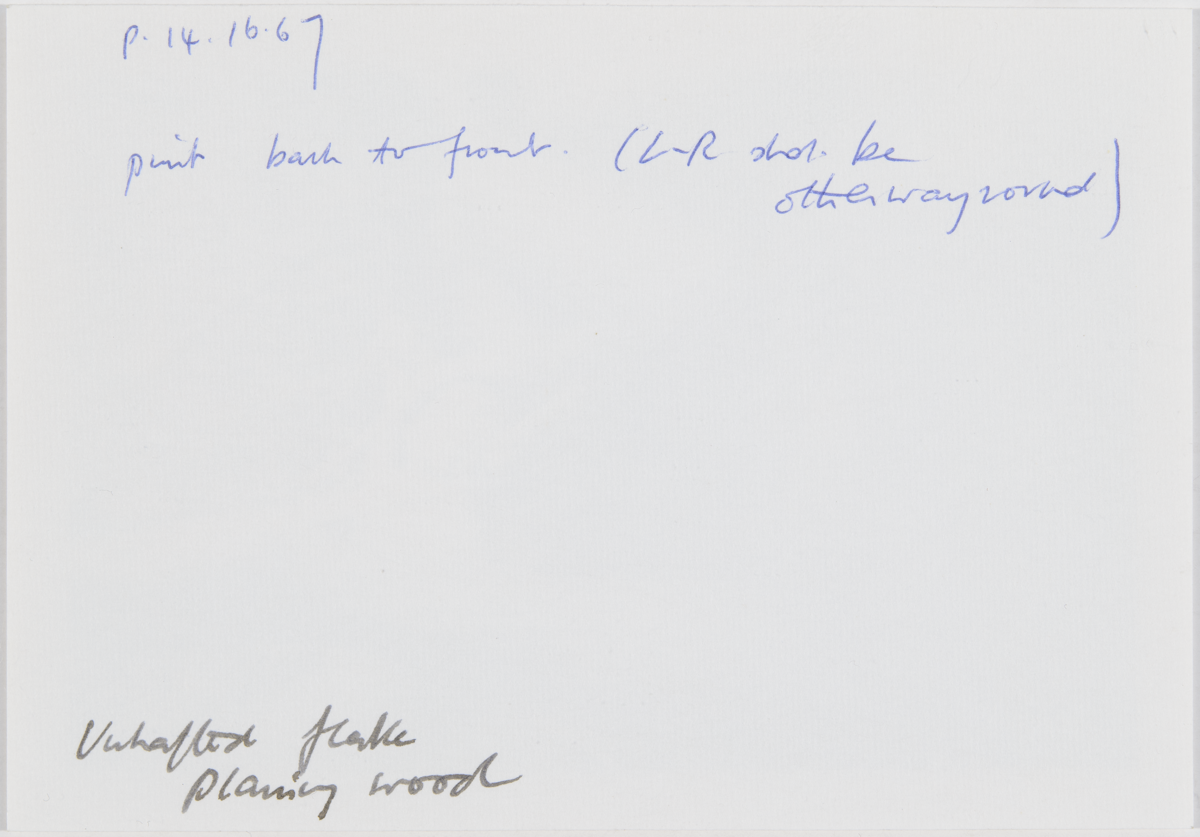 p. 14.16.67
print back to front. (L-R shd. be
other way round)
Unhafted flake
planing wood